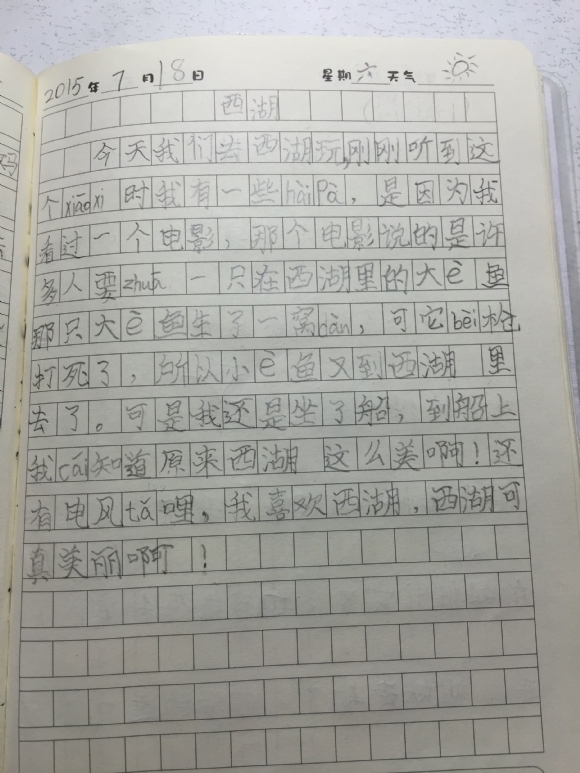 2015年7月18日 星期六天气
西湖
今天我们去西湖玩,刚刚听到这
个xiāoxi时我有一些hàiPà,是因为我
看过一个电影,那个电影说的是许
多人要zhuā一只在西湖里的大è鱼
那只大è鱼生了一窝dàn,可它bèi枪
打死了,所以小è鱼又到西湖里
去了。可是我还是坐了船,到船上
我cái知道原来西湖这么美啊!还
有电风tǎ哩。我喜欢西湖,西湖可
真美丽啊!